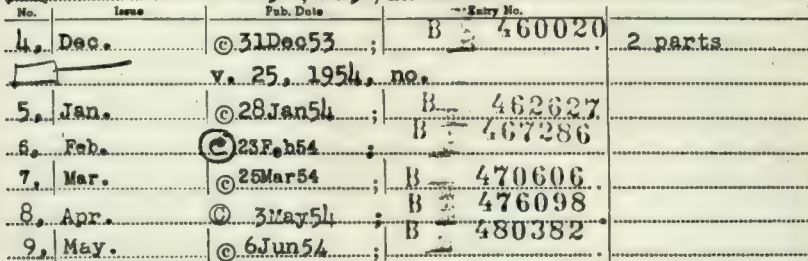 No. Issue Pub. Date Entry No.
4, Dec. © 31Dec53 ; B 460020. 2 parts
v. 25, 1954, no.
5, Jan. © 28Jan54 ; B 462627
6, Feb. © 23Feb54 ; B 467286
7, Mar. © 25Mar54 ; B 470606.
8, Apr. © 3May54 ; B 476098
9, May. © 6Jun54 ; B 480382.